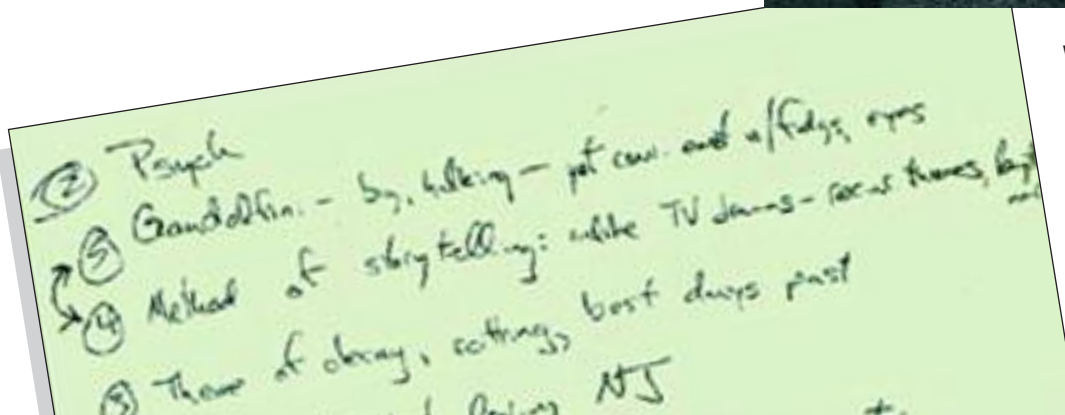 ② Psych
⑤ Gandolfini - big, hulking - yet can emot w/fidgs, eyes
④ Method of storytelling: unlike TV dramas - focus themes,
③ Theme of decay, rotting, best days past
NJ